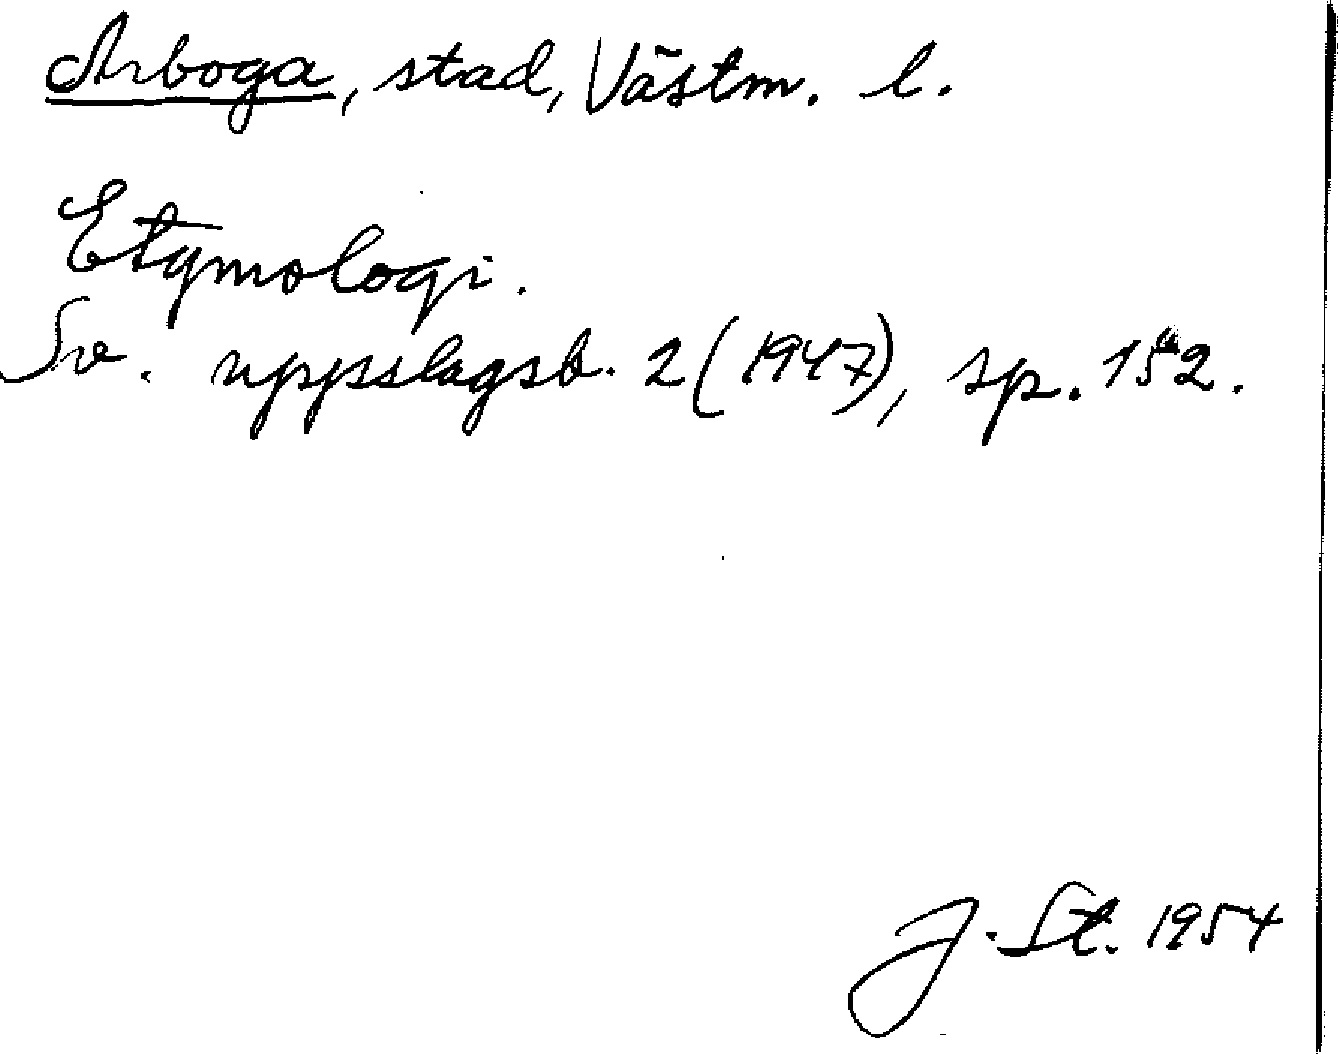 Arboga, stad, Västm. l.
Etymologi.
Sv. uppslagsb. 2 (1947), sp. 152.
J. St. 1954